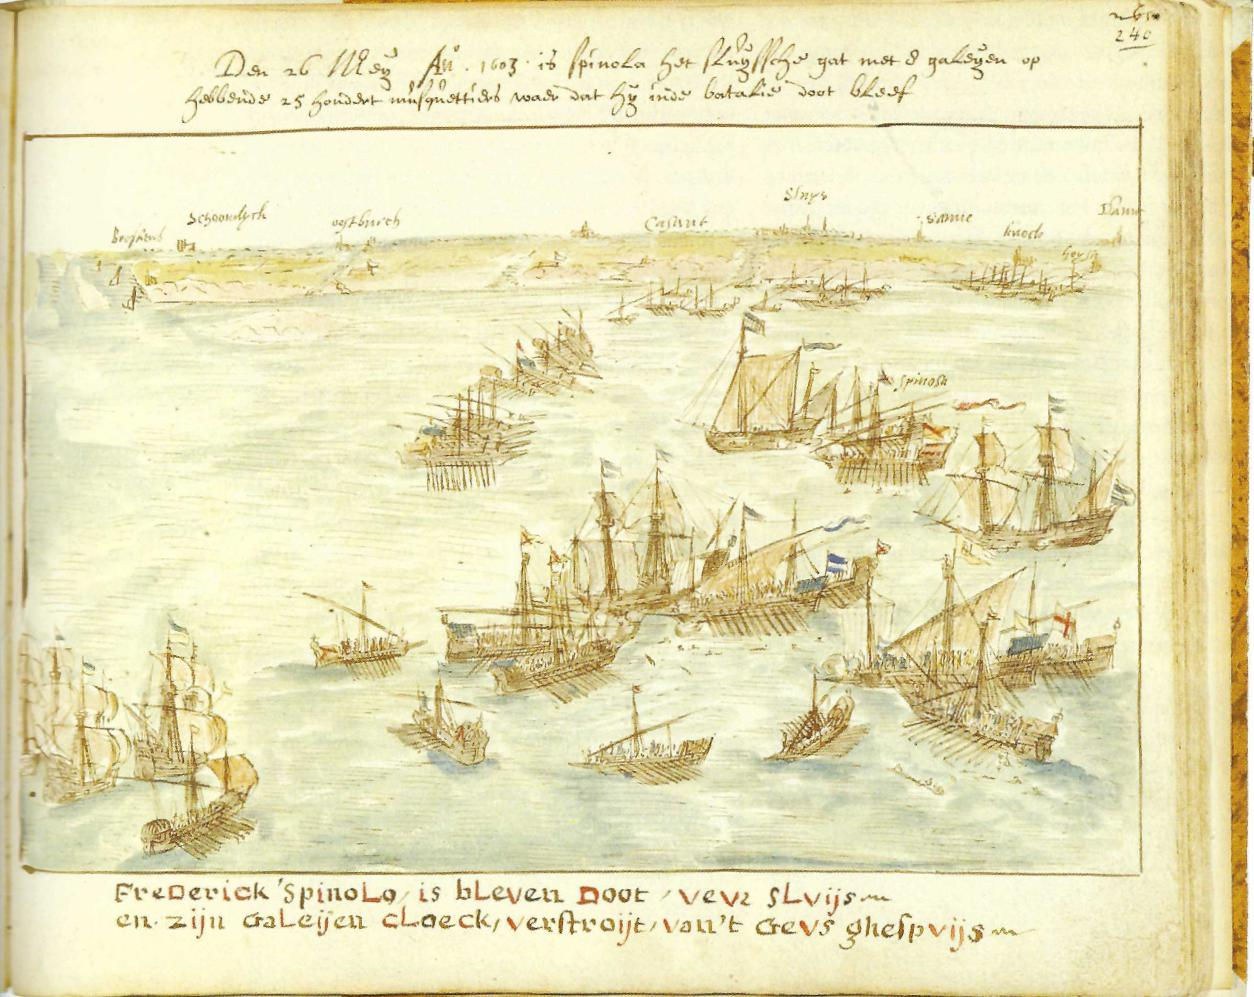 240
Den 26 Meÿ An°. 1603. is spinola het sluÿssche gat met 8 galeÿen op
hebbende 25 hondert musquettiers waer dat hÿ inde batalie doot bleef
Sluys
Schoondyck oostburch Casant S anne Dam
Bresiens knock
heyst
Spinola
FreDerick Spinolo, is bLeven Doot, veur sLvijs
en zijn GaLeijen cLoeck, verstroijt, van't Gevs ghespvijs